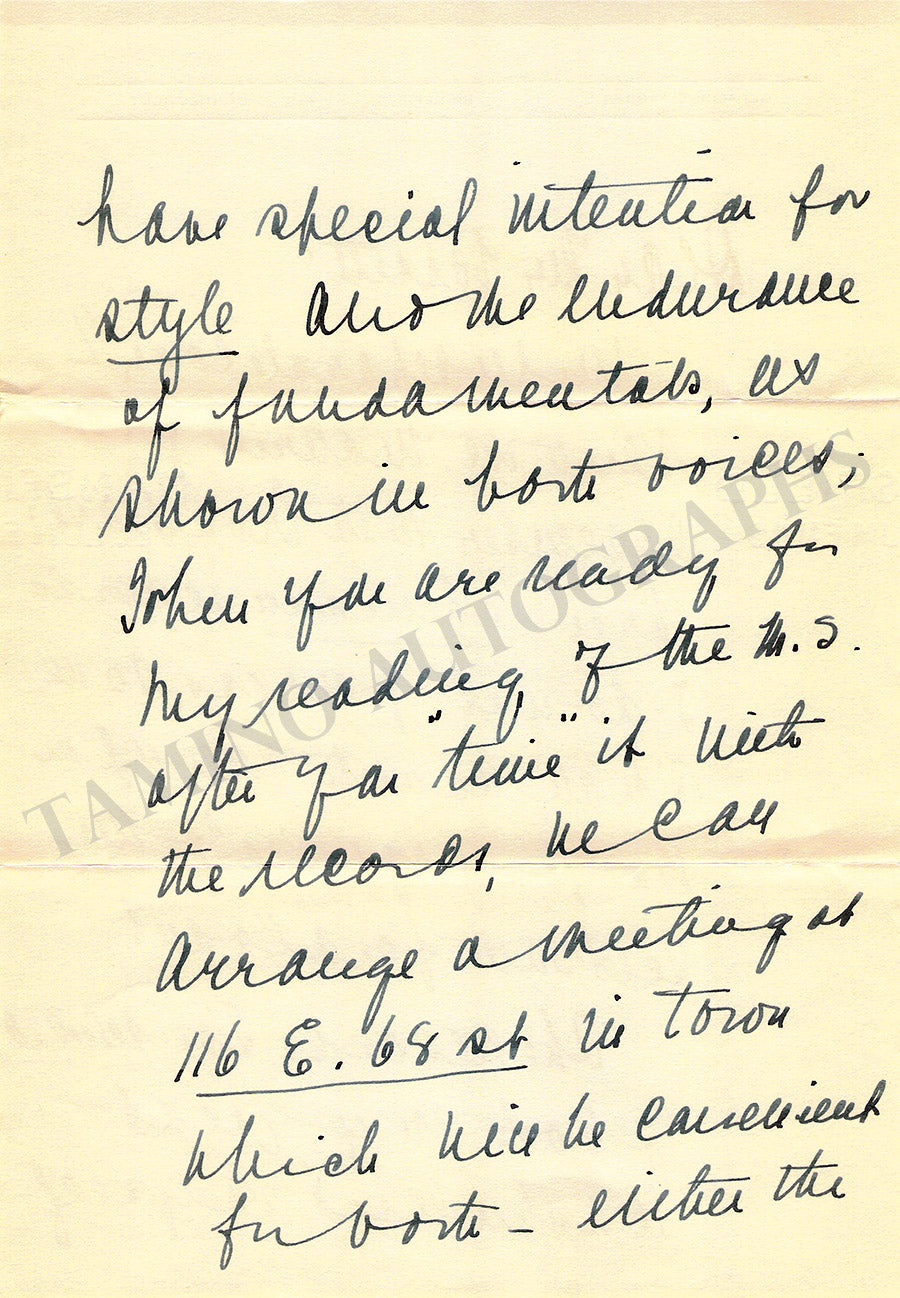 have special intention for
style Also the endurance
of fundamentals, as
shown in both voices,
When you are ready for
my reading of the M.S.
after you "time" it with
the records, we can
arrange a meeting at
116 E. 68 st in town
which will be convenient
for both – either the
TAMINO AUTOGRAPHS